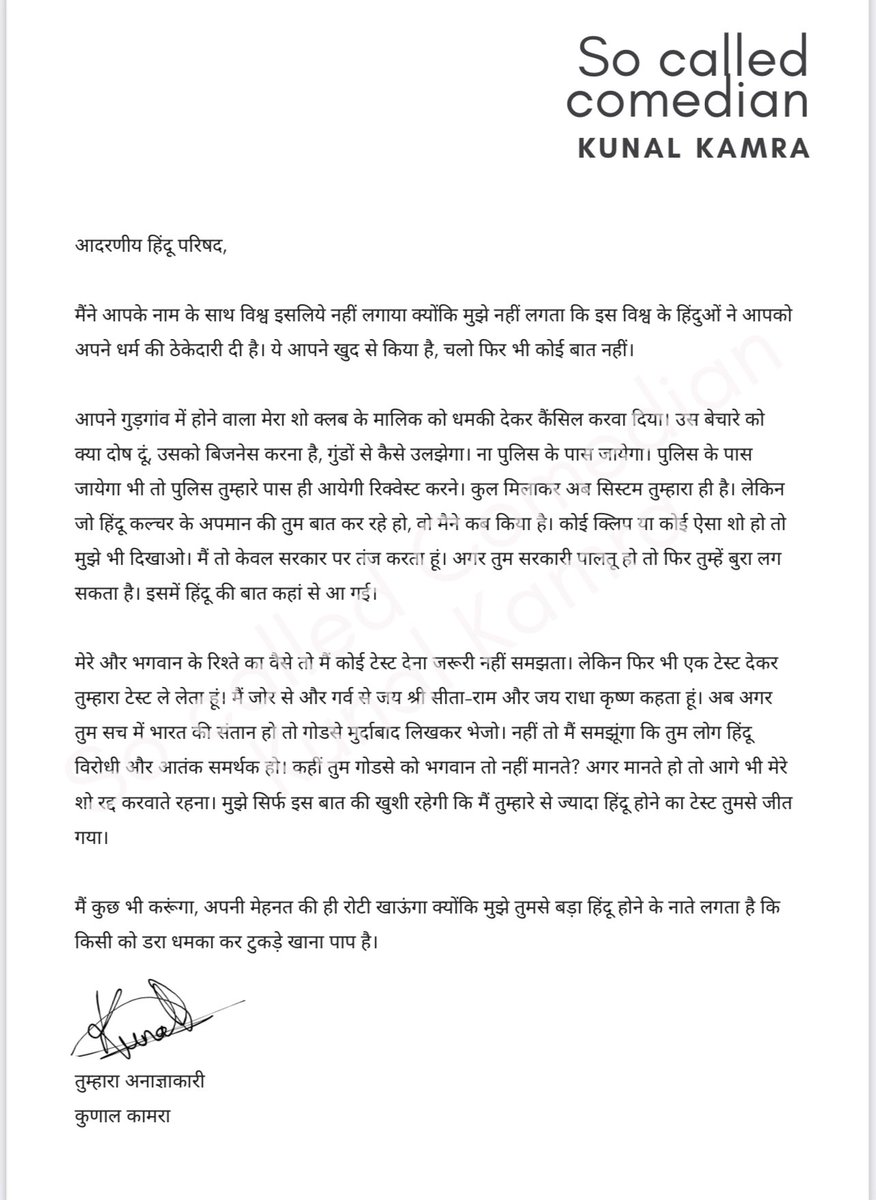 So called
comedian
KUNAL KAMRA
आदरणीय हिंदू परिषद,
मैंने आपके नाम के साथ विश्व इसलिये नहीं लगाया क्योंकि मुझे नहीं लगता कि इस विश्व के हिंदुओं ने आपको
अपने धर्म की ठेकेदारी दी है। ये आपने खुद से किया है, चलो फिर भी कोई बात नहीं।
आपने गुड़गांव में होने वाला मेरा शो क्लब के मालिक को धमकी देकर कैंसिल करवा दिया। उस बेचारे को
क्या दोष दूं, उसको बिजनेस करना है, गुंडों से कैसे उलझेगा। ना पुलिस के पास जायेगा। पुलिस के पास
जायेगा भी तो पुलिस तुम्हारे पास ही आयेगी रिक्वेस्ट करने। कुल मिलाकर अब सिस्टम तुम्हारा ही है। लेकिन
जो हिंदू कल्चर के अपमान की तुम बात कर रहे हो, वो मैने कब किया है। कोई क्लिप या कोई ऐसा शो हो तो
मुझे भी दिखाओ। मैं तो केवल सरकार पर तंज करता हूं। अगर तुम सरकारी पालतू हो तो फिर तुम्हें बुरा लग
सकता है। इसमें हिंदू की बात कहां से आ गई।
मेरे और भगवान के रिश्ते का वैसे तो मैं कोई टेस्ट देना जरूरी नहीं समझता। लेकिन फिर भी एक टेस्ट देकर
तुम्हारा टेस्ट ले लेता हूं। मैं जोर से और गर्व से जय श्री सीता-राम और जय राधा कृष्ण कहता हूं। अब अगर
तुम सच में भारत की संतान हो तो गोडसे मुर्दाबाद लिखकर भेजो। नहीं तो मैं समझूंगा कि तुम लोग हिंदू
विरोधी और आतंक समर्थक हो। कहीं तुम गोडसे को भगवान तो नहीं मानते? अगर मानते हो तो आगे भी मेरे
शो रद्द करवाते रहना। मुझे सिर्फ इस बात की खुशी रहेगी कि मैं तुम्हारे से ज्यादा हिंदू होने का टेस्ट तुमसे जीत
गया।
मैं कुछ भी करूंगा, अपनी मेहनत की ही रोटी खाऊंगा क्योंकि मुझे तुमसे बड़ा हिंदू होने के नाते लगता है कि
किसी को डरा धमका कर टुकड़े खाना पाप है।
Kunal
तुम्हारा अनाज्ञाकारी
कुणाल कामरा
So called Comedian
Kunal Kamra